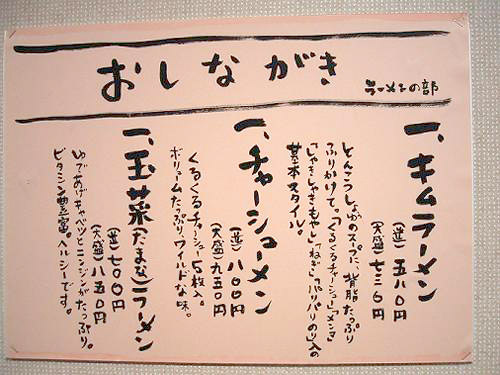 おしながき
ラーメンの部
一、キムラーメン
(並)五八〇円
(大盛)七三〇円
とんこつしょうゆのスープに、背脂たっぷり
ふりかけて。「くるくるチャーシュー」「メンマ」
「しゃきしゃきもやし」「ねぎ」「パリパリのり」入の
基本スタイル。
一、チャーシューメン
(並)八〇〇円
(大盛)九五〇円
くるくるチャーシュー5枚入。
ボリュームたっぷり、ワイルドな味。
一、玉菜(たまな)ラーメン
(並)七〇〇円
(大盛)八五〇円
ゆであげキャベツとニンジンがたっぷり。
ビタミン豊富。ヘルシーです。